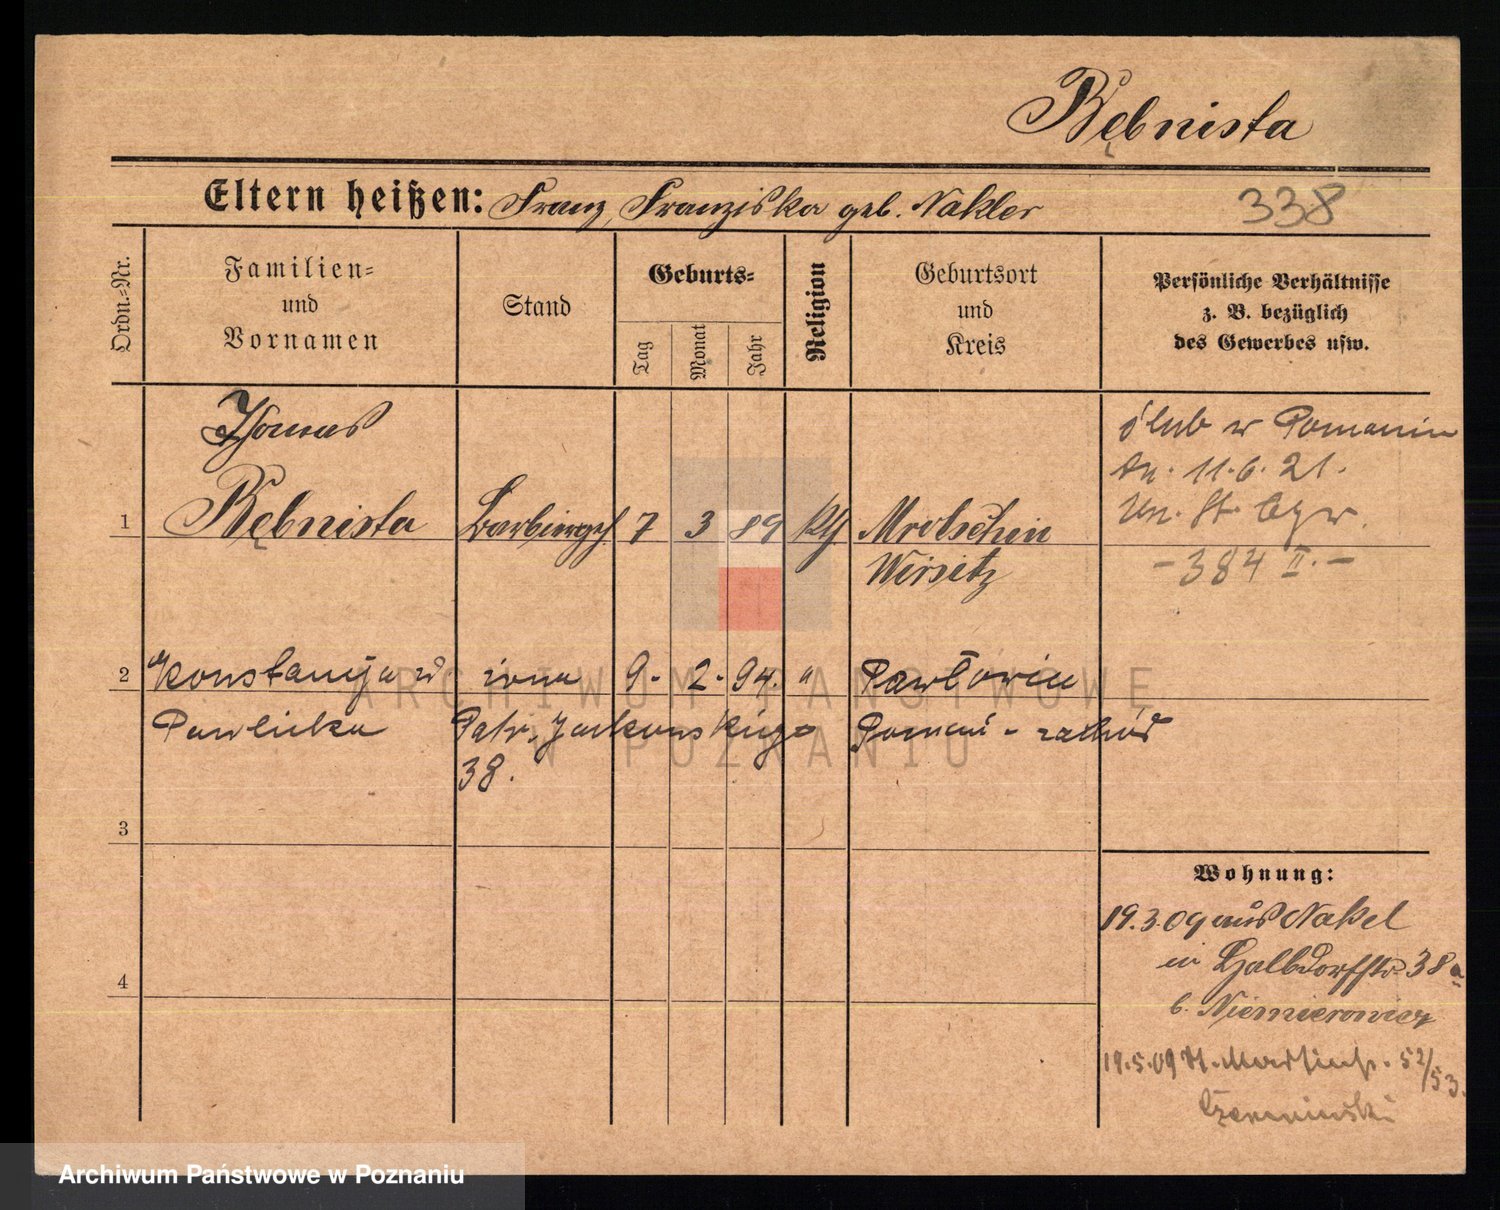 Bębnista
Eltern heißen: Franz, Franziska geb. Nakler 338
Ordn.-Nr.
Familien- und Vornamen
Stand
Geburts-
Tag
Monat
Jahr
Religion
Geburtsort und Kreis
Persönliche Verhältnisse z. B. bezüglich des Gewerbes usw.
Thomas
1 Bębnista Barbiergeh. 7 3 89 kth Mrotschen
Wirsitz
ślub w Poznaniu
dn. 11.6.21.
- 384 II. -
2 Konstancja żona 9. 2. 94. "
Pawlicka Patr. Jackowskiego
38.
3
4
Wohnung:
19.3.09 aus Nakel
in Halbdorfstr. 38a
b. Niemierowicz
19.5.09 St. Martinstr. 52/53.
ARCHIWUM PAŃSTWOWE
W POZNANIU
Archiwum Państwowe w Poznaniu